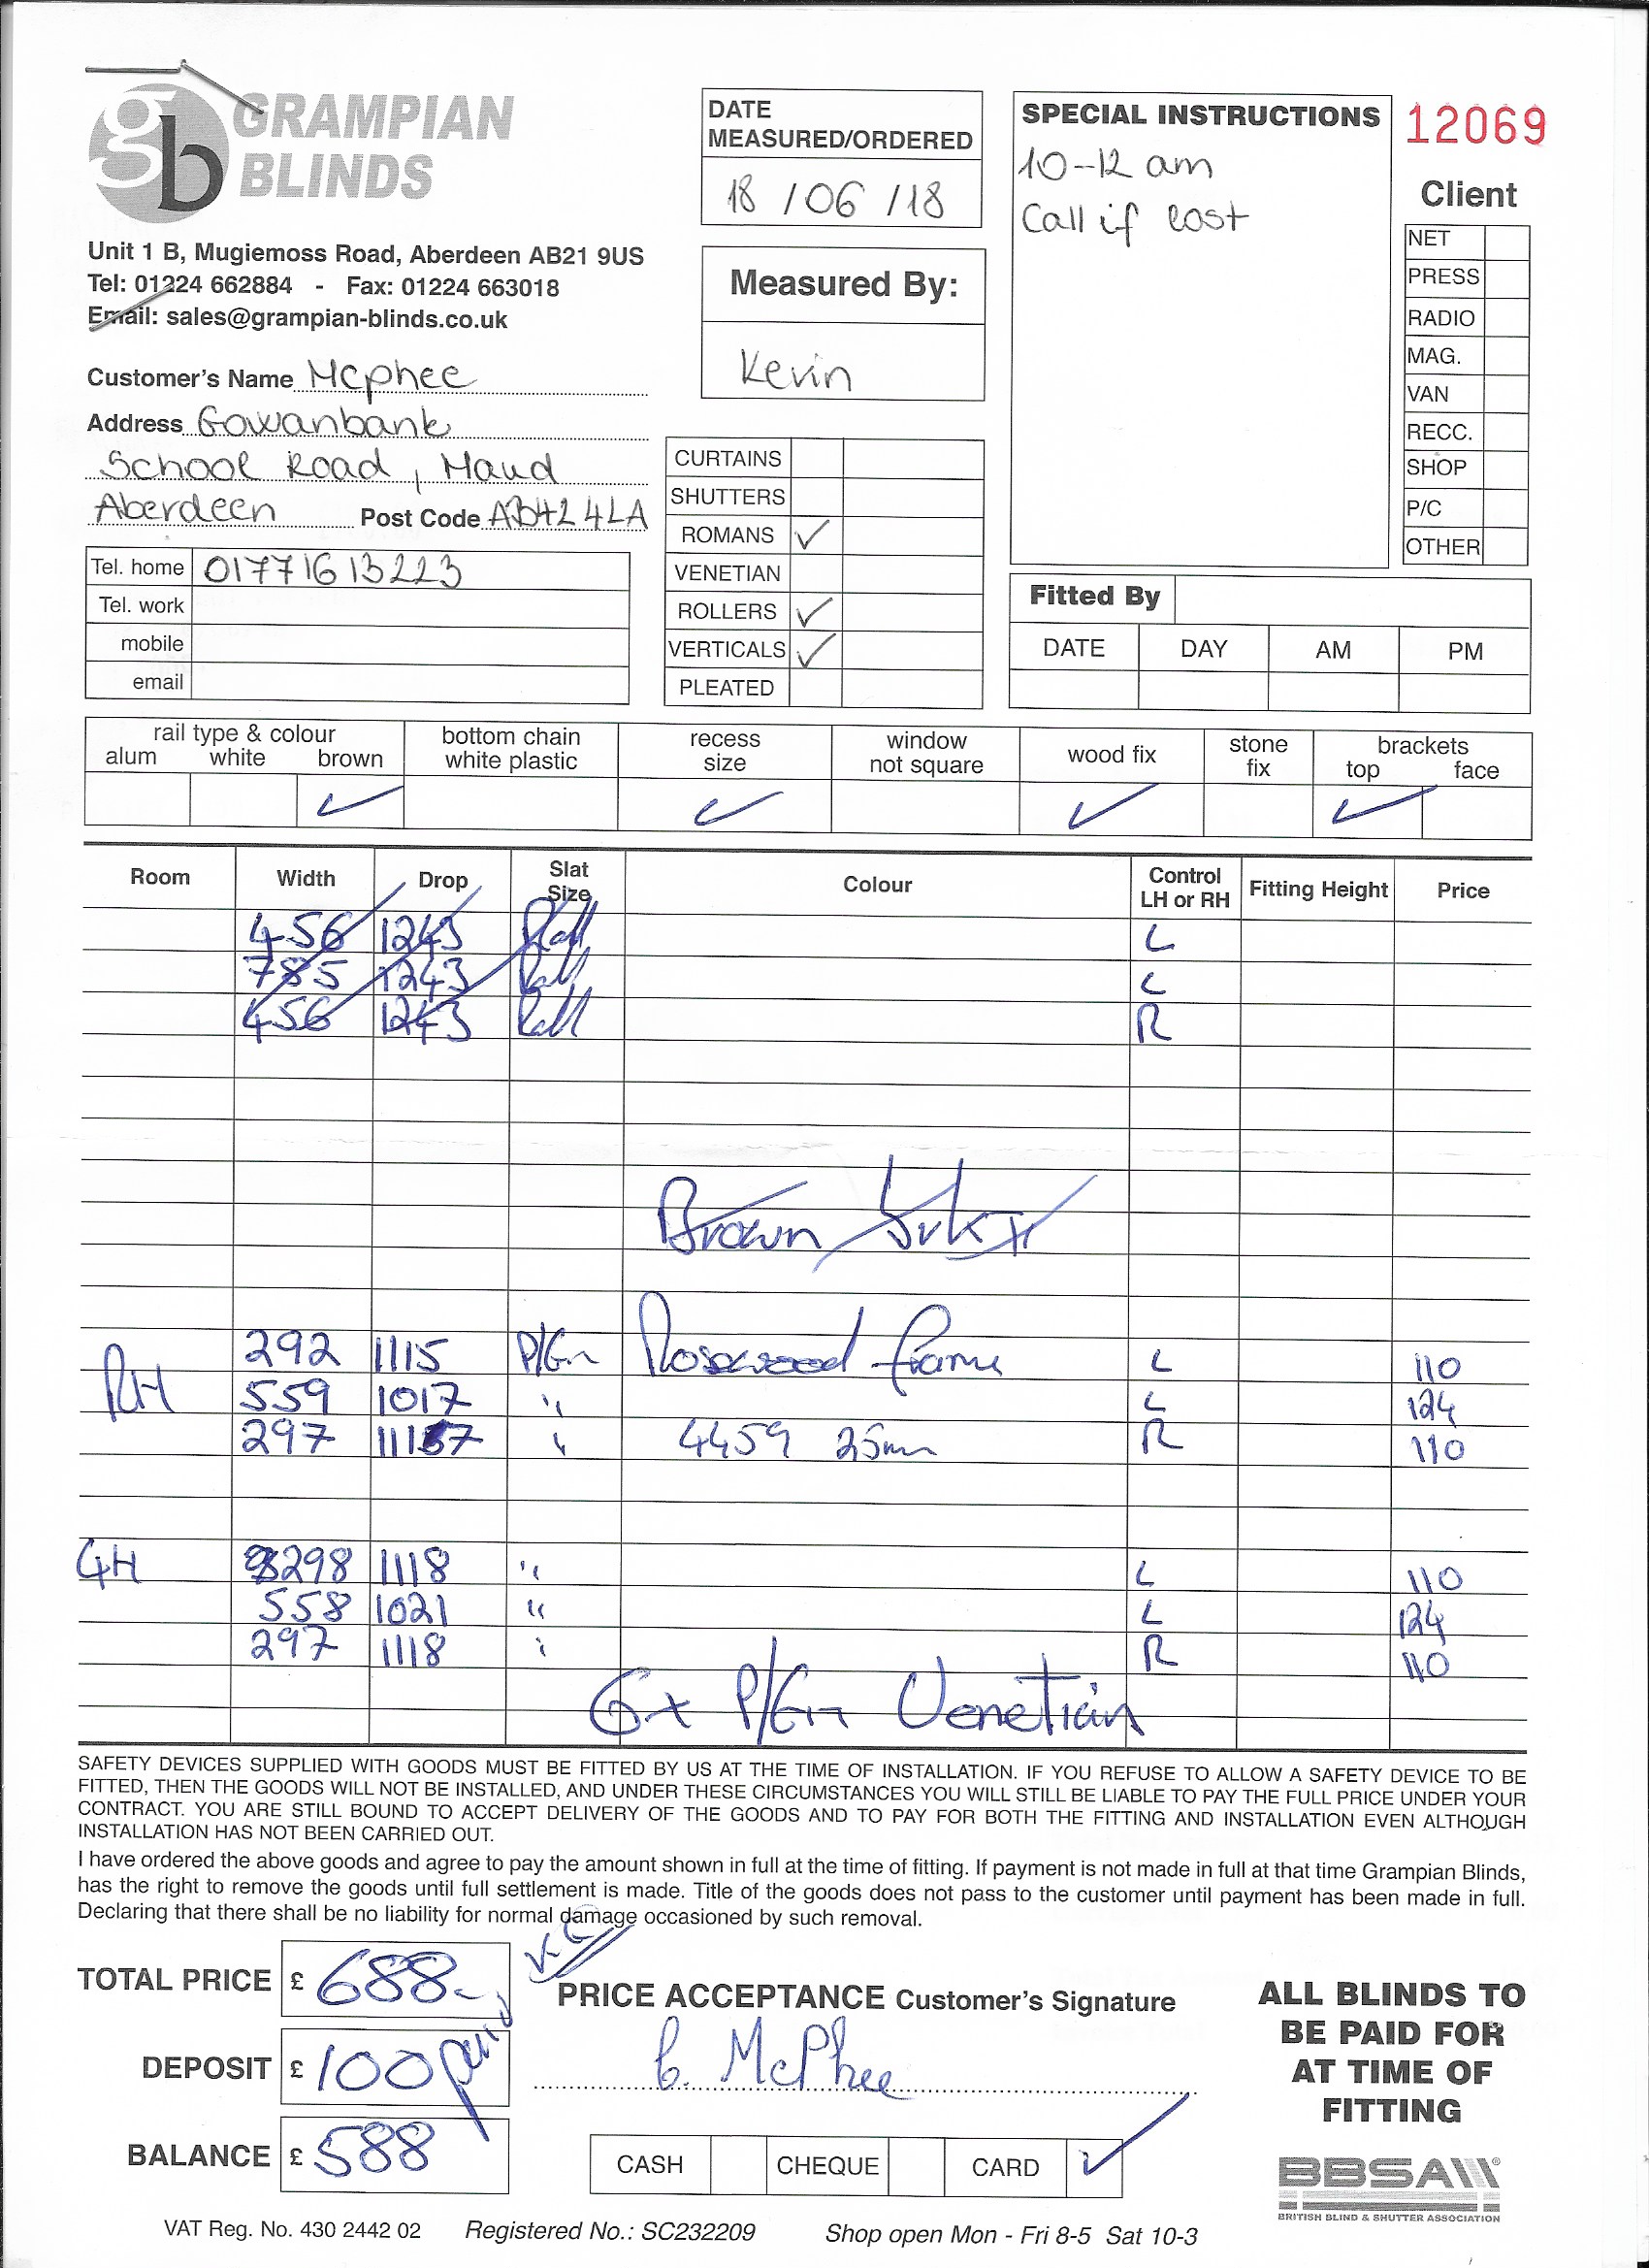 gb GRAMPIAN
BLINDS
Unit 1 B, Mugiemoss Road, Aberdeen AB21 9US
Tel: 01224 662884 - Fax: 01224 663018
Email: sales@grampian-blinds.co.uk
Customer's Name Mcphee
Address Gowanbank
School Road, Maud
Aberdeen Post Code AB42 4LA
Tel. home 01771613223
Tel. work
mobile
email
DATE
MEASURED/ORDERED
18 / 06 / 18
Measured By:
Kevin
CURTAINS
SHUTTERS
ROMANS ✓
VENETIAN
ROLLERS ✓
VERTICALS ✓
PLEATED
SPECIAL INSTRUCTIONS
10-12 am
Call if lost
12069
Client
NET
PRESS
RADIO
MAG.
VAN
RECC.
SHOP
P/C
OTHER
Fitted By
DATE DAY AM PM
rail type & colour
alum white brown ✓
bottom chain
white plastic
recess
size ✓
window
not square
wood fix ✓
stone
fix
brackets
top ✓ face
Room Width Drop Slat Size Colour Control LH or RH Fitting Height Price
456 1243 Roll L
785 1243 Roll L
456 1243 Roll R
Brown
292 1115 P/Gn Rosewood frame L 110
RH 559 1017 " L 124
297 1117 " 4459 25mm R 110
GH 298 1118 " L 110
558 1021 " L 124
297 1118 " R 110
6x P/Gn Venetian
SAFETY DEVICES SUPPLIED WITH GOODS MUST BE FITTED BY US AT THE TIME OF INSTALLATION. IF YOU REFUSE TO ALLOW A SAFETY DEVICE TO BE
FITTED, THEN THE GOODS WILL NOT BE INSTALLED, AND UNDER THESE CIRCUMSTANCES YOU WILL STILL BE LIABLE TO PAY THE FULL PRICE UNDER YOUR
CONTRACT. YOU ARE STILL BOUND TO ACCEPT DELIVERY OF THE GOODS AND TO PAY FOR BOTH THE FITTING AND INSTALLATION EVEN ALTHOUGH
INSTALLATION HAS NOT BEEN CARRIED OUT.
I have ordered the above goods and agree to pay the amount shown in full at the time of fitting. If payment is not made in full at that time Grampian Blinds,
has the right to remove the goods until full settlement is made. Title of the goods does not pass to the customer until payment has been made in full.
Declaring that there shall be no liability for normal damage occasioned by such removal.
TOTAL PRICE £ 688-
DEPOSIT £ 100 paid
BALANCE £ 588
PRICE ACCEPTANCE Customer's Signature
C. McPhee
CASH CHEQUE CARD ✓
ALL BLINDS TO
BE PAID FOR
AT TIME OF
FITTING
BBSA
BRITISH BLIND & SHUTTER ASSOCIATION
VAT Reg. No. 430 2442 02 Registered No.: SC232209 Shop open Mon - Fri 8-5 Sat 10-3